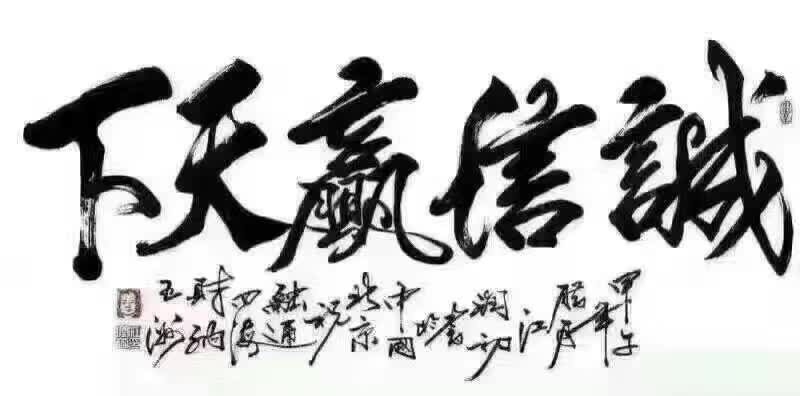 誠信贏天下
甲午年
臘月
江
書於
中國
北京
祝
融通
四海
財納
五洲